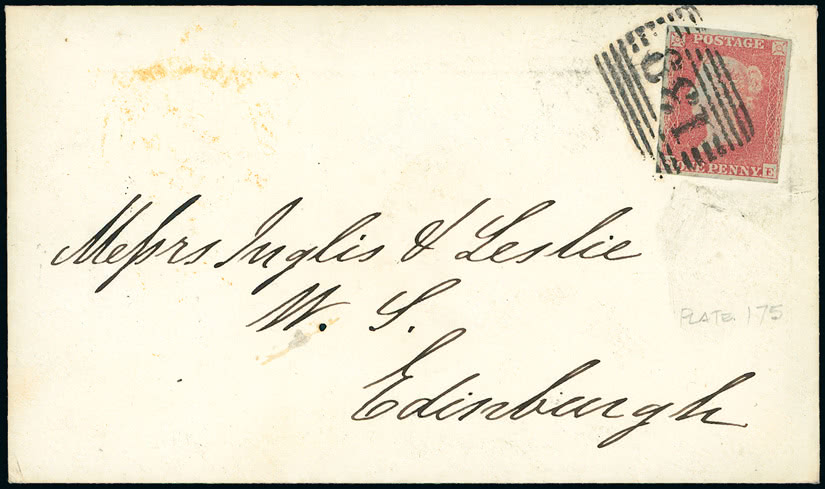 POSTAGE
E PENNY
E
Messrs Inglis & Leslie
W. S.
Edinburgh
PLATE. 175